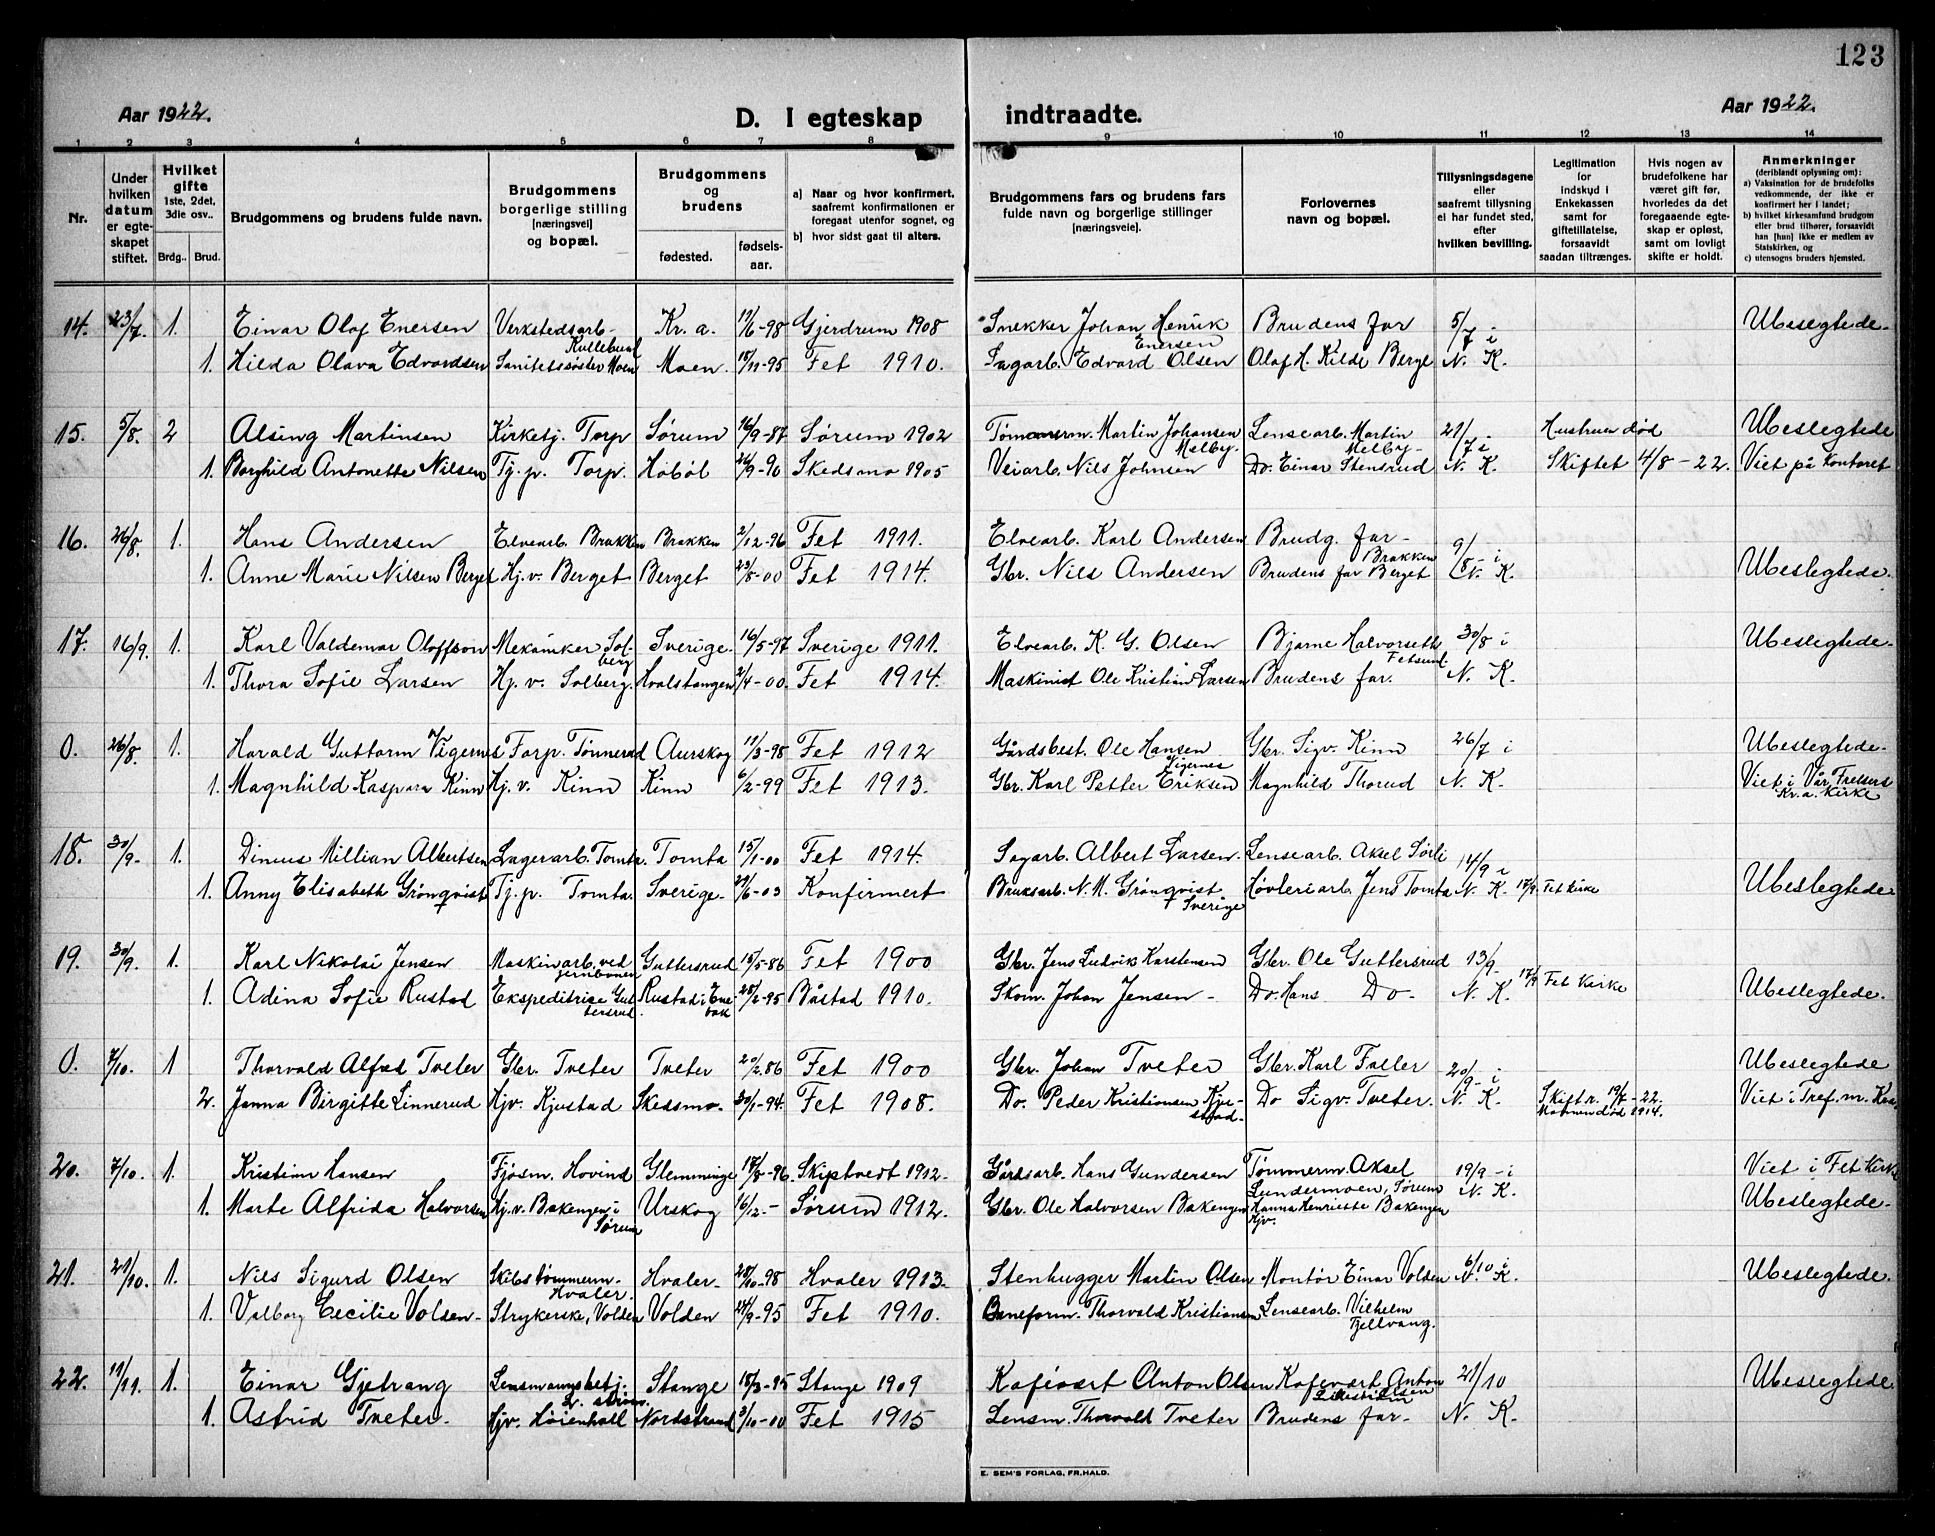 123
Aar 1922.
D. I egteskap indtraadte.
Aar 1922.
1 2 3 4 5 6 7 8 9 10 11 12 13 14
Nr.
Under hvilken datum er egteskapet stiftet.
Hvilket gifte 1ste, 2det, 3die osv.. Brdg.. Brud.
Brudgommens og brudens fulde navn.
Brudgommens borgerlige stilling [næringsvei] og bopæl.
Brudgommens og brudens fødested. fødselsaar.
a) Naar og hvor konfirmert, saafremt konfirmationen er foregaat utenfor sognet, og
b) hvor sidst gaat til alters.
Brudgommens fars og brudens fars fulde navn og borgerlige stillinger [næringsveie].
Forlovernes navn og bopæl.
Tillysningsdagene eller saafremt tillysning ei har fundet sted, efter hvilken bevilling.
Legitimation for indskud i Enkekassen samt for giftetillatelse, forsaavidt saadan tiltrænges.
Hvis nogen av brudefolkene har været gift før, hvorledes da det foregaaende egteskap er opløst, samt om lovligt skifte er holdt.
Anmerkninger (deriblandt oplysning om):
a) Vaksination for de brudefolks vedkommende, der ikke er konfirmert her i landet;
b) hvilket kirkesamfund brudgom eller brud tilhører, forsaavidt han [hun] ikke er medlem av Statskirken, og
c) utensogns bruders hjemsted.
14. 23/7. 1. Einar Olaf Enersen Verkstedsarb. Kullebund Kr. a. 17/6-98 Gjerdrum 1908 Snekker Johan Henrik Enersen Brudens far 5/7 i Ubeslegtede.
1. Hilda Olava Edvardsen Sanitetssøster Moen Moen. 15/11-95 Fet 1910. Sagarb. Edvard Olsen Olaf H. Kilde Berge N. K.
15. 5/8. 2 Alsing Martinsen Kirketj. Torp Sørum 16/9-87 Sørum 1902 Tømmerm. Martin Johansen Melby. Lensearb. Martin Melby. 21/7 i Hustruen død Ubeslegtede
1. Borghild Antonette Nilsen Tj. p. Torp. Hobøl 26/9-90 Skedsmo 1905 Veiarb. Nils Johnsen Do. Einar Stensrud N. K. Skiftet 4/8-22. Viet på Kontoret
16. 26/8. 1. Hans Andersen Elvearb. Brakken Brakken 2/12-96 Fet 1911. Elvearb. Karl Andersen Brudg. far Brakken 9/8 i
1. Anne Marie Nilsen Berget Hj. v. Berget Berget 23/8-00 Fet 1914. Gbr. Nils Andersen Brudens far Berget N. K. Ubeslegtede.
17. 16/9. 1. Karl Valdemar Oloffson Mekaniker Solberg Sverige. 16/5-97 Sverige 1911. Elvearb. K. G. Olsen Bjarne Halvorseth Fetsund. 30/8 i Ubeslegtede.
1. Thora Sofie Larsen Hj. v. Solberg. Hvalstangen 2/4-00. Fet 1914. Maskinist Ole Kristian Larsen Brudens far. N. K.
0. 26/8. 1. Harald Guttorm Vigernes Forp. Tønnerud Aurskog 11/3-98 Fet 1912 Gårdsbest. Ole Hansen Vigernes Gbr. Sigv. Kinn 26/7 i Ubeslegtede.
1. Magnhild Kaspara Kinn Hj. v. Kinn Kinn 6/2-99 Fet 1913. Gbr. Karl Petter Eriksen Magnhild Thorud N. K. Viet i Vår Frelsers Kr. a. Kirke
18. 30/9. 1. Dinius Millian Albertsen Lagerarb. Tomta. Tomta 15/1-00 Fet 1914. Sagarb. Albert Larsen. Lensearb. Aksel Sørli 14/9 i
1. Anny Elisabeth Grönqvist Tj. p. Tomta. Sverige. 21/6-03 Konfirmert 17/9. Fet kirke Bruksarb. N. M. Grönqvist Sverige Høvleriarb. Jens Tomta N. K. Ubeslegtede
19. 30/9. 1. Karl Nikolai Jensen Maskinarb. ved jernbanen Guttersrud 15/5-86 Fet 1900 Gbr. Jens Ludvik Karstensen Gbr. Ole Guttersrud 13/9
1. Adina Sofie Rustad Ekspeditrise Guttersrud Rustad i Enebak 28/2-95 Båstad 1910. Skom. Johan Jensen Do. Hans Do N. K. 17/9 Fet kirke Ubeslegtede.
0. 7/10. 1 Thorvald Alfred Tveter Gbr. Tveter Tveter 20/2 86 Fet 1900 Gbr. Johan Tveter Gbr. Karl Faller 20/9 i Ubeslegtede
2. Janna Birgitte Linnerud Hjv. Kjustad Skedsmo. 30/1-94. Fet 1908. Do. Peder Kristiansen Kjustad. Do Sigv. Tveter. N. K. Skifter. 19/7-22. Mannen død 1914. Viet i Tref. m.
20. 7/10. 1. Kristian Hansen Fjøsm. Hovind Glemminge 17/8-96. Skiptvedt 1912. Gårdsarb. Hans Gundersen Tømmerm. Aksel Lundermoen, Sørum 19/9 i N. K. Viet i Fet Kirke
1. Marte Alfrida Halvorsen Hj. v. Bakengen i Sørum Urskog 16/12 - Sørum 1912. Gbr. Ole Halvorsen Bakengen Hanna Henriette Bakengen Hjv. Ubeslegtede.
21. 21/10. 1. Nils Sigurd Olsen Skibstømmerm. Hvaler. Hvaler 28/10-98 Hvaler 1913. Stenhugger Martin Olsen Montør Einar Volden 6/10 i N. K. Ubeslegtede.
1. Valborg Cecilie Volden Strykerske, Volden Volden 24/9-95 Fet 1910. Baneform. Thorvald Kristiansen Lensearb. Vilhelm Fjellvang.
22. 11/11. 1. Einar Gjetrang Lensmannsbetj. Stange 18/3-95 Stange 1909 Kafévært Anton Olsen Kafévært Anton Olsen 21/10 Ubeslegtede
1. Astrid Tveter. Hjv. Høienhall Nordstrand 3/10-00 Fet 1915 Lensm. Thorvald Tveter Brudens far N. K.
E. SEM'S FORLAG, FR.HALD.